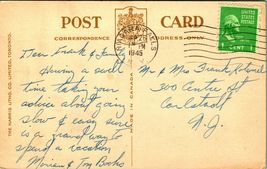 POST CARD
CORRESPONDENCE ADDRESS—ONLY
NIAGARA FALLS
1945
UNITED STATES POSTAGE
1 CENT
THE HARRIS LITHO. CO. LIMITED, TORONTO.
MADE IN CANADA
Dear Frank &
Having a swell
time taking your
advice about going
slow & easy sure
is a grand way to
spend a vacation
Miriam & Tom
Mr & Mrs Frank
300 Centre St
Carlstadt
N.J.